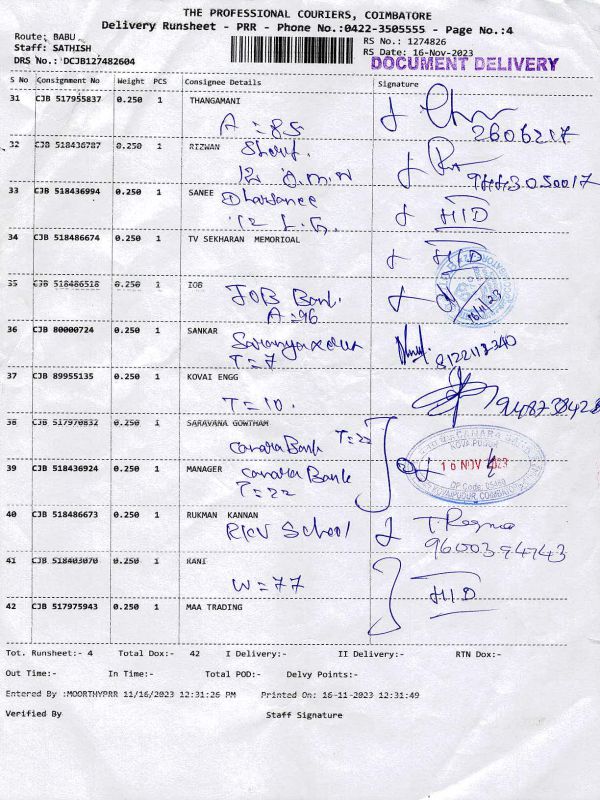 THE PROFESSIONAL COURIERS, COIMBATORE
Delivery Runsheet - PRR - Phone No.:0422-3505555 - Page No.:4
Route: BABU
RS No.: 1274826
Staff: SATHISH
RS Date: 16-Nov-2023
DRS No.: DCJB127482604
DOCUMENT DELIVERY
S No Consignment No Weight PCS Consignee Details Signature
31 CJB 517955837 0.250 1 THANGAMANI
A = 85
2606217
32 CJB 518436787 0.250 1 RIZWAN
9443050017
33 CJB 518436994 0.250 1 SANEE
Dharsanee
HID
34 CJB 518486674 0.250 1 TV SEKHARAN MEMORIOAL
HID
35 CJB 518486518 0.250 1 IOB
IOB Bank.
A = 96
16/11/23
36 CJB 80000724 0.250 1 SANKAR
T = 7
8122118340
37 CJB 89955135 0.250 1 KOVAI ENGG
T = 10.
38 CJB 517970832 0.250 1 SARAVANA GOWTHAM
canara Bank T = 22
CANARA BANK
KOVAIPUDUR
39 CJB 518436924 0.250 1 MANAGER
canara Bank
T = 22
16 NOV 2023
KOVAIPUDUR, COIMBATORE
40 CJB 518486673 0.250 1 RUKMAN KANNAN
RKV School
9600394743
41 CJB 518403070 0.250 1 RANI
W = 77
HID
42 CJB 517975943 0.250 1 MAA TRADING
Tot. Runsheet:- 4 Total Dox:- 42 I Delivery:- II Delivery:- RTN Dox:-
Out Time:- In Time:- Total POD:- Delvy Points:-
Entered By :MOORTHYPRR 11/16/2023 12:31:26 PM Printed On: 16-11-2023 12:31:49
Verified By Staff Signature